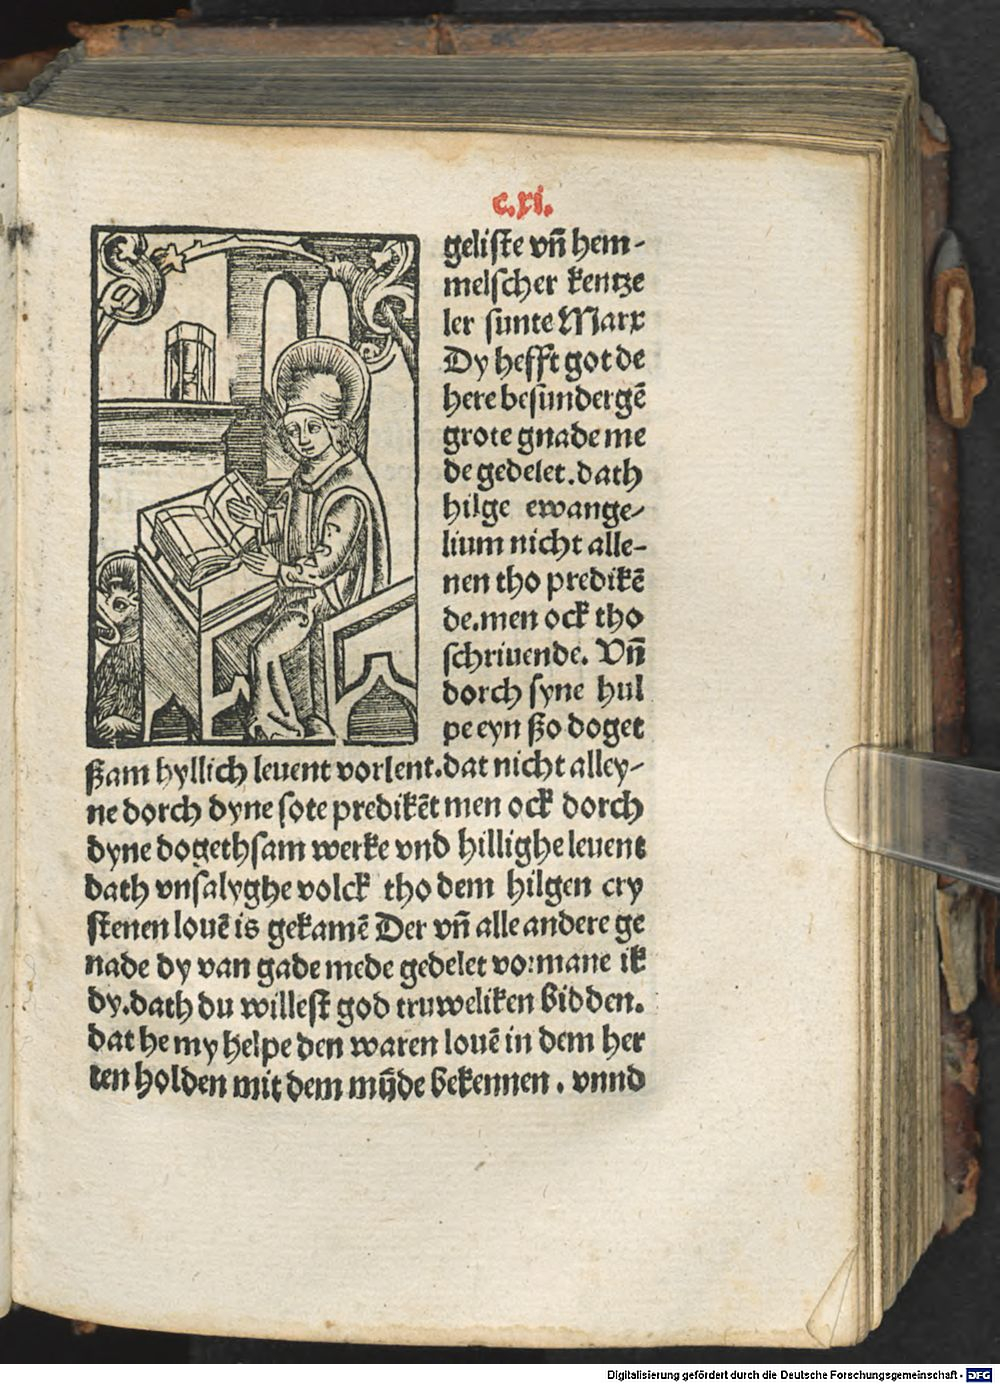 c.xi.
geliste vn̄ hem-
melscher kentze
ler sunte Marx
Dy hefft got de
here besundergē
grote gnade me
de gedelet. dath
hilge ewange-
lium nicht alle-
nen tho predikē
de. men ock tho
schriuende. Vn̄
dorch syne hul
pe eyn ßo doget
ßam hyllich leuent vorlent. dat nicht alley-
ne dorch dyne sote predikēt men ock dorch
dyne dogethsam werke vnd hillighe leuent
dath vnsalyghe volck tho dem hilgen cry
stenen louē is gekamē Der vn̄ alle andere ge
nade dy van gade mede gedelet vormane ik
dy. dath du willest god truweliken bidden.
dat he my helpe den waren louē in dem her
ten holden mit dem mūde bekennen. vnnd
Digitalisierung gefördert durch die Deutsche Forschungsgemeinschaft - DFG